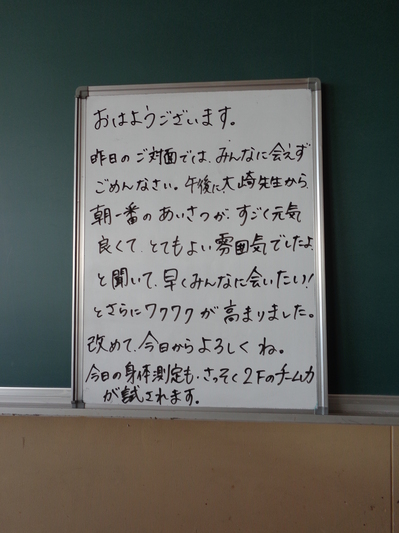 おはようございます。
昨日のご対面では、みんなに会えず
ごめんなさい。午後に大崎先生から、
朝一番のあいさつが、すごく元気
良くて、とてもよい雰囲気でしたよ
と聞いて、早くみんなに会いたい!
とさらにワクワクが高まりました。
改めて、今日からよろしくね。
今日の身体測定も、さっそく2Fのチーム力
が試されます。